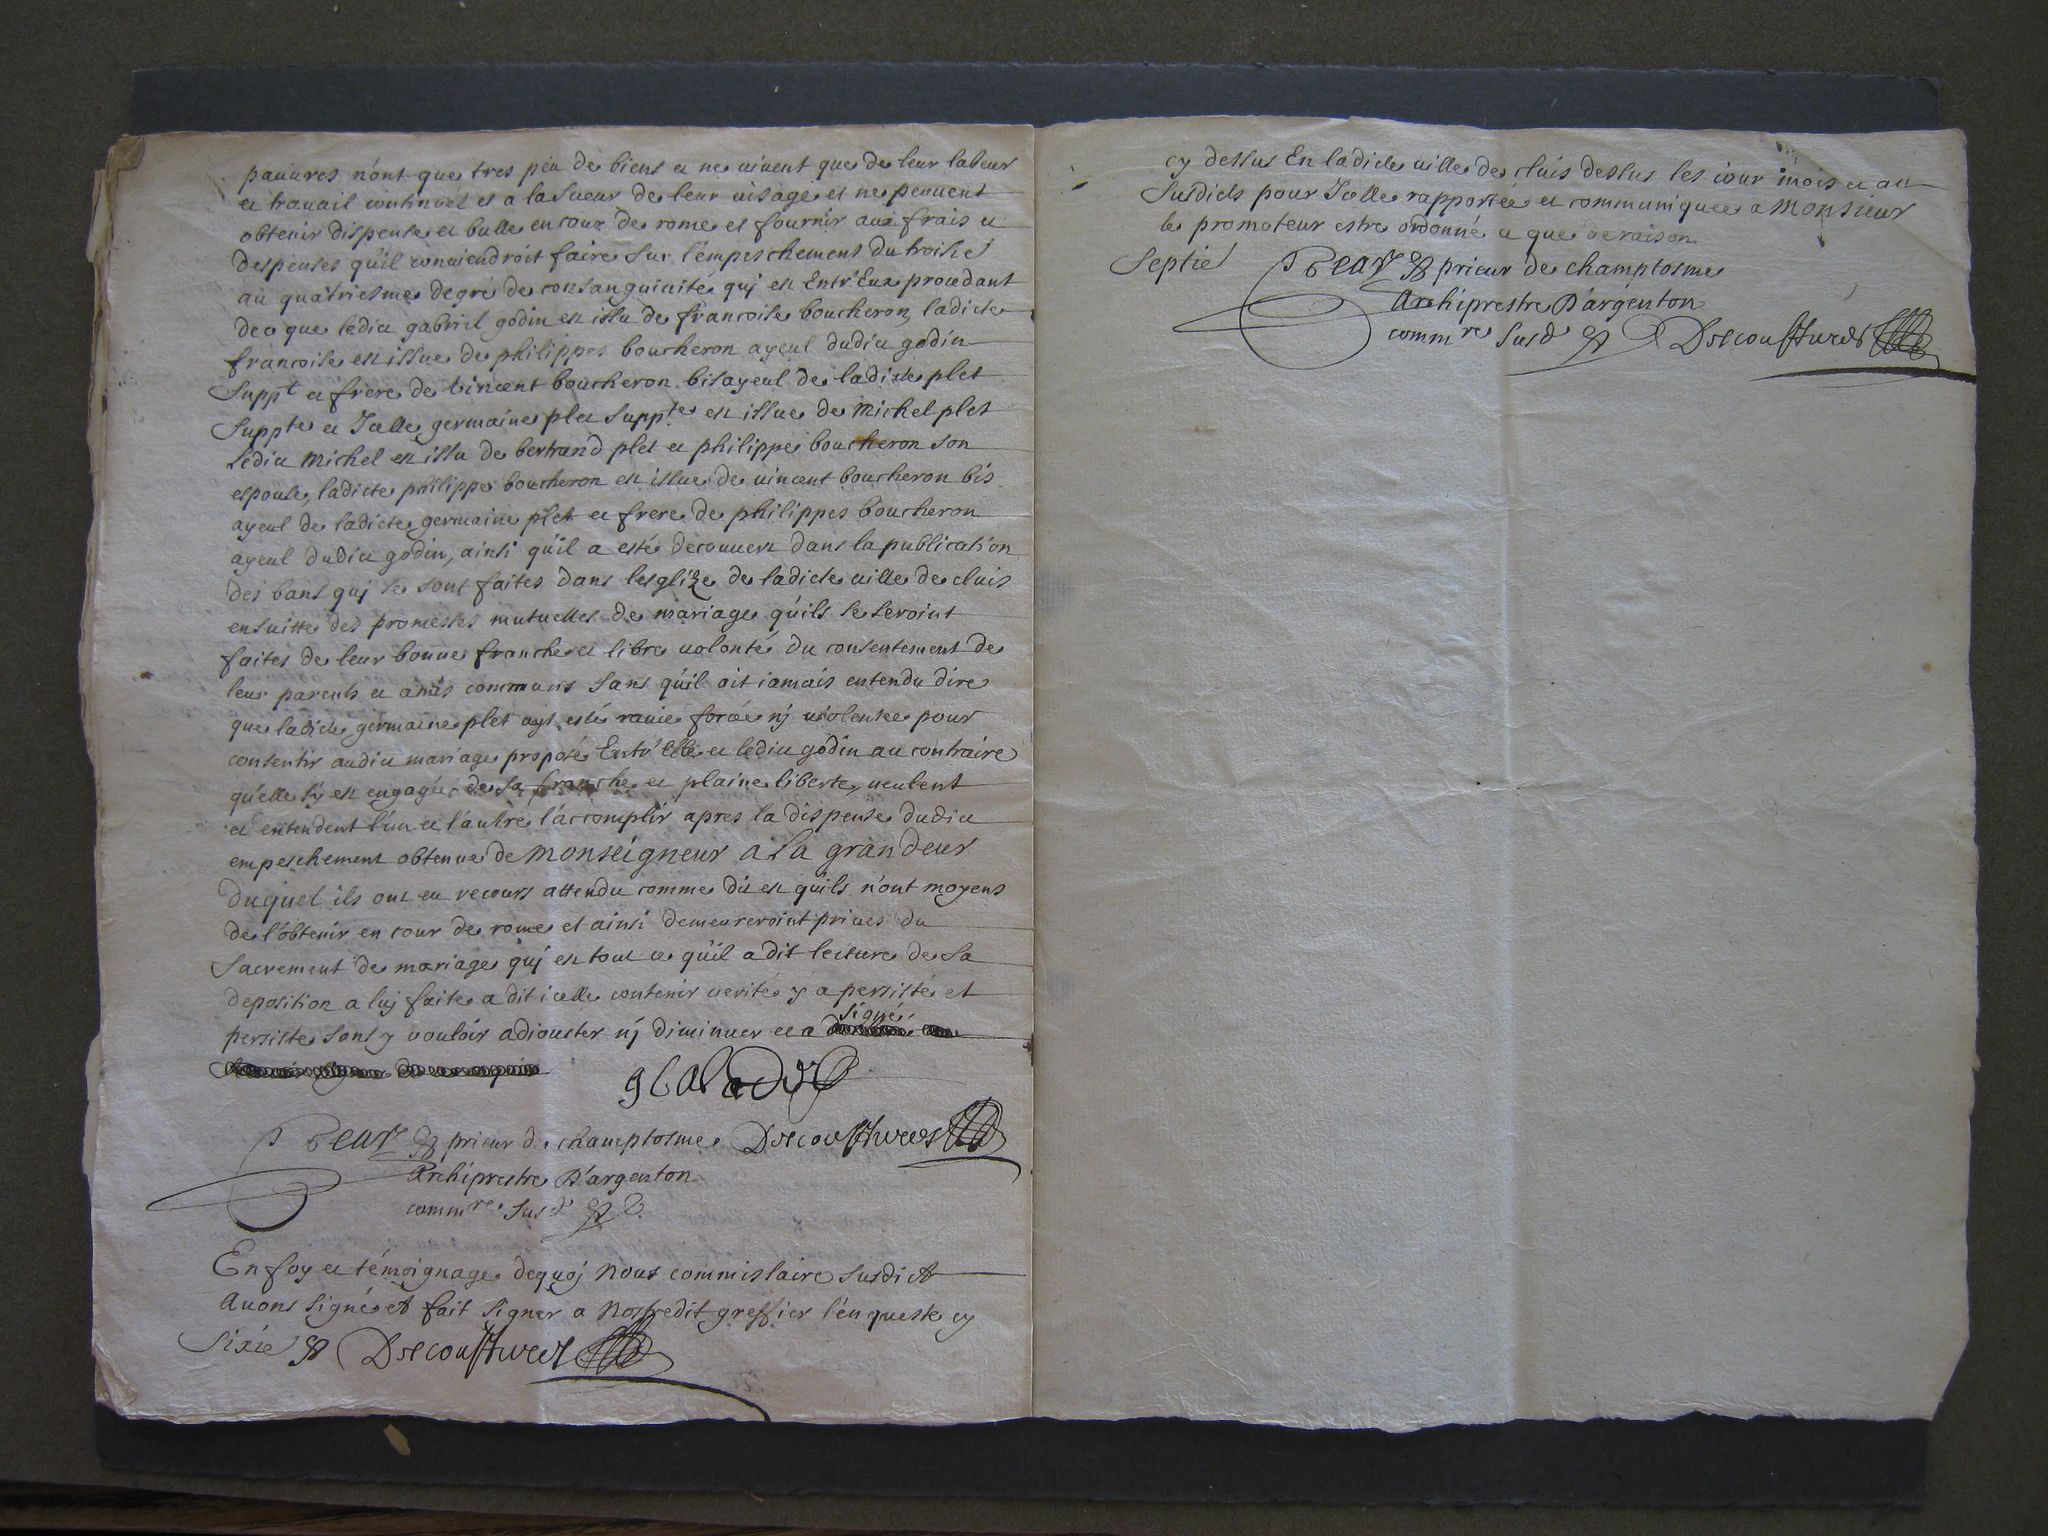 pauures n'ont que tres peu de biens et ne uiuent que de leur labeur
et trauail continuel et a la sueur de leur uisage et ne peuuent
obtenir dispense et bulle en cour de rome et fournir aux frais et
despenses qu'il conuiendroit faire sur l'empeschement du troisie
au quatriesme degré de consanguinité quj est Entr'Eux procedant
de ce que ledict gabriel godin est issu de francoise boucheron, ladicte
francoise est issue de philippes boucheron ayeul dudict godin
suppt et frere de vincent boucheron bisayeul de ladicte plet
suppte et Icelle germaine plet suppte est issue de michel plet
ledict michel est issu de bertrand plet et philippe boucheron son
espouse, ladicte philippe boucheron est issue de uincent boucheron bis
ayeul de ladicte germaine plet et frere de philippes boucheron
ayeul dudict godin, ainsi qu'il a esté decouuert dans la publication
des bans quj se sont faites dans lesglize de ladicte uille de cluis
ensuitte des promesses mutuelles de mariage qu'ils se seroint
faites de leur bonne franche et libre uolonté du consentement de
leur parents et amis communs sans qu'il ait iamais entendu dire
que ladicte germaine plet ayt esté rauie forcée nj uiolentee pour
consentir audict mariage proposé Entr'Elle et ledict godin au contraire
qu'elle s'y est engagée de sa franche et plaine liberte, ueulent
et entendent l'un et l'autre l'accomplir apres la dispense dudict
empeschement obtenue de monseigneur a la grandeur
duquel ils ont eu recours attendu comme dit est qu'ils n'ont moyens
de l'obtenir en cour de rome et ainsi demeureroint priues du
sacrement de mariage quj est tout ce qu'il a dit lecture de sa
deposition a luj faite a dit icelle contenir uerité y a persisté et
persiste sans y vouloir adiouster nj diminuer et a signé
prieur de champtosme Descoustures
Archiprestre D'argenton
commre susd
En foy et témoignage dequoj nous commissaire susdict
Auons signé et fait signer a nostredit greffier l'enqueste cy
Sixie Descoustures
cy dessus En ladicte uille de cluis dessus les iour mois et an
susdicts pour Icelle rapportée et communiquee a monsieur
le promoteur estre ordonné ce que de raison
Septie prieur de champtosme
Archiprestre D'argenton
commre susd Descoustures